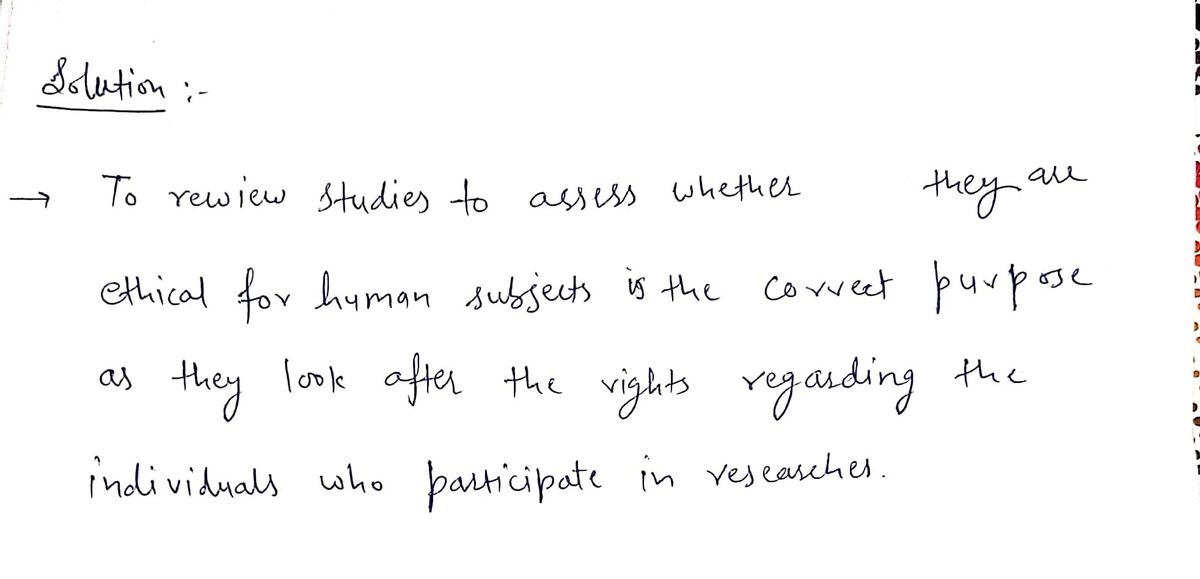 Solution :-
→ To rewiew studies to assess whether they are
ethical for human subjects is the correct purpose
as they look after the rights regarding the
individuals who participate in researches.